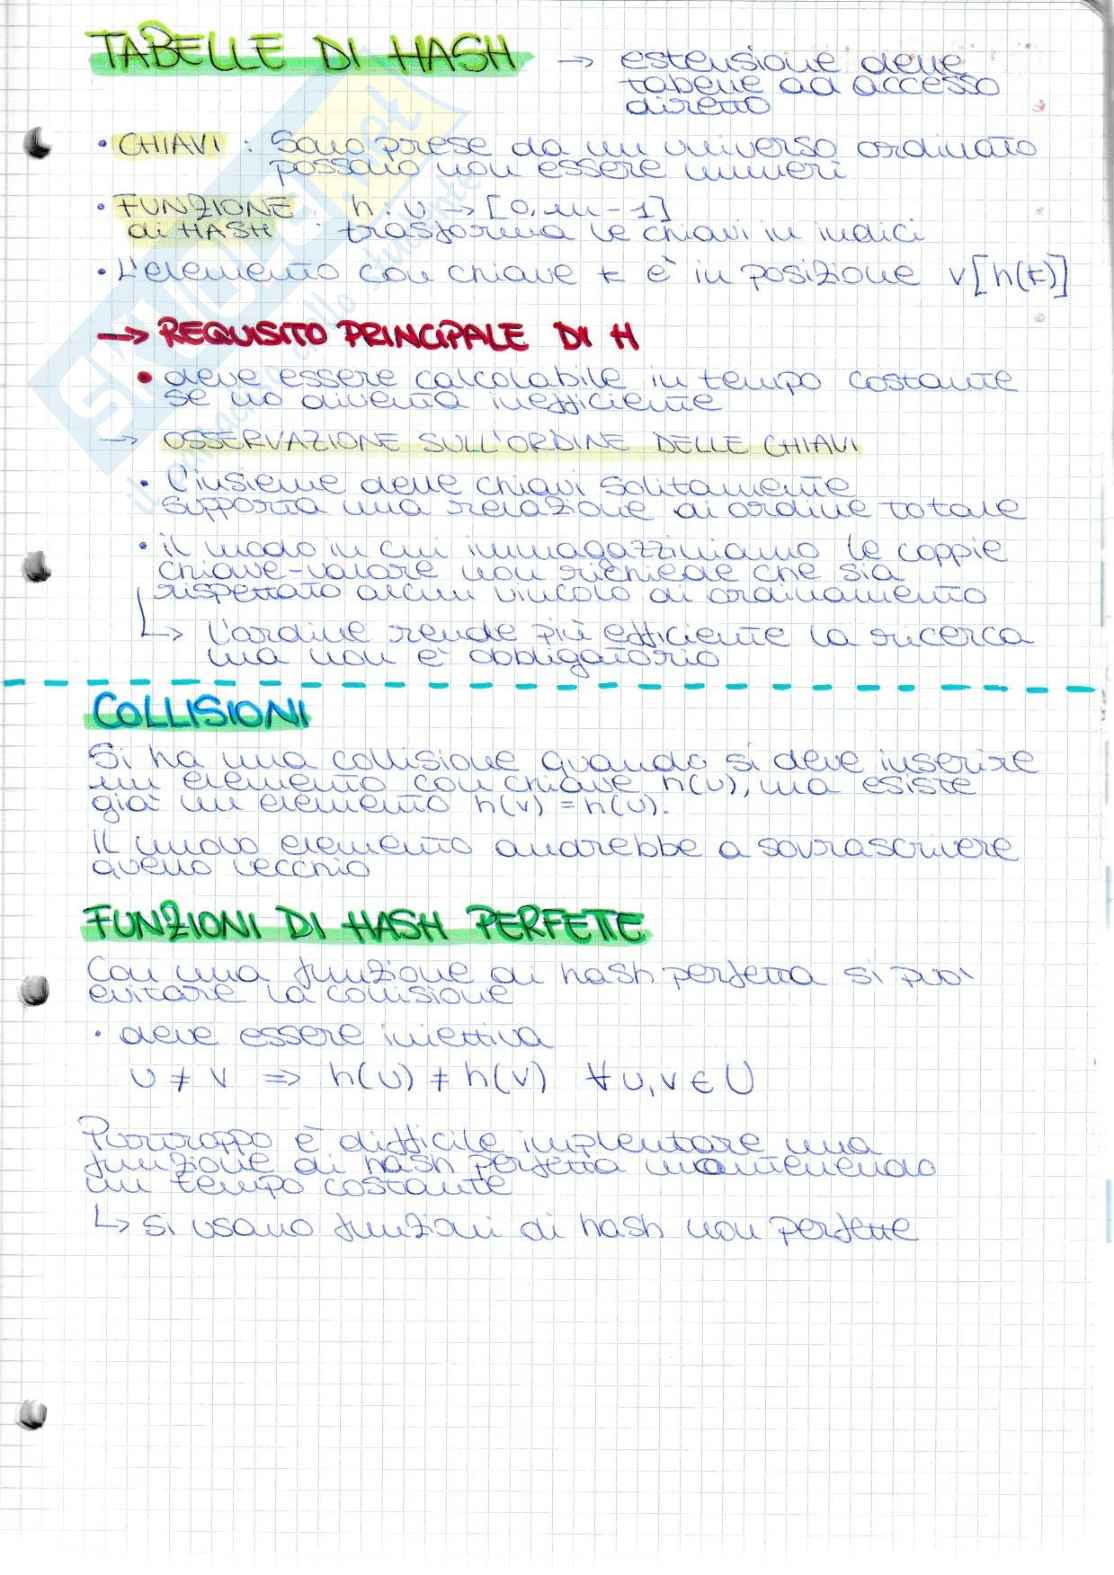 TABELLE DI HASH → estensione delle
tabelle ad accesso
diretto
• CHIAVI : Sono prese da un universo ordinato
possono non essere numeri
• FUNZIONE h: U → [0, m-1]
di HASH : trasforma le chiavi in indici
• L'elemento con chiave k è in posizione v[h(k)]
→ REQUISITO PRINCIPALE DI H
• deve essere calcolabile in tempo costante
se no diventa inefficiente
→ OSSERVAZIONE SULL'ORDINE DELLE CHIAVI
• L'insieme delle chiavi solitamente
supporta una relazione di ordine totale
• il modo in cui immagazziniamo le coppie
chiave-valore non richiede che sia
rispettato alcun vincolo di ordinamento
↳ L'ordine rende più efficiente la ricerca
ma non è obbligatorio
COLLISIONI
Si ha una collisione quando si deve inserire
un elemento con chiave h(u), ma esiste
già un elemento h(v) = h(u).
Il nuovo elemento andrebbe a sovrascrivere
quello vecchio
FUNZIONI DI HASH PERFETTE
Con una funzione di hash perfetta si può
evitare la collisione
• deve essere iniettiva
u ≠ v ⇒ h(u) ≠ h(v) ∀ u, v ∈ U
Purtroppo è difficile implentare una
funzione di hash perfetta mantenendo
un tempo costante
↳ si usano funzioni di hash non perfette